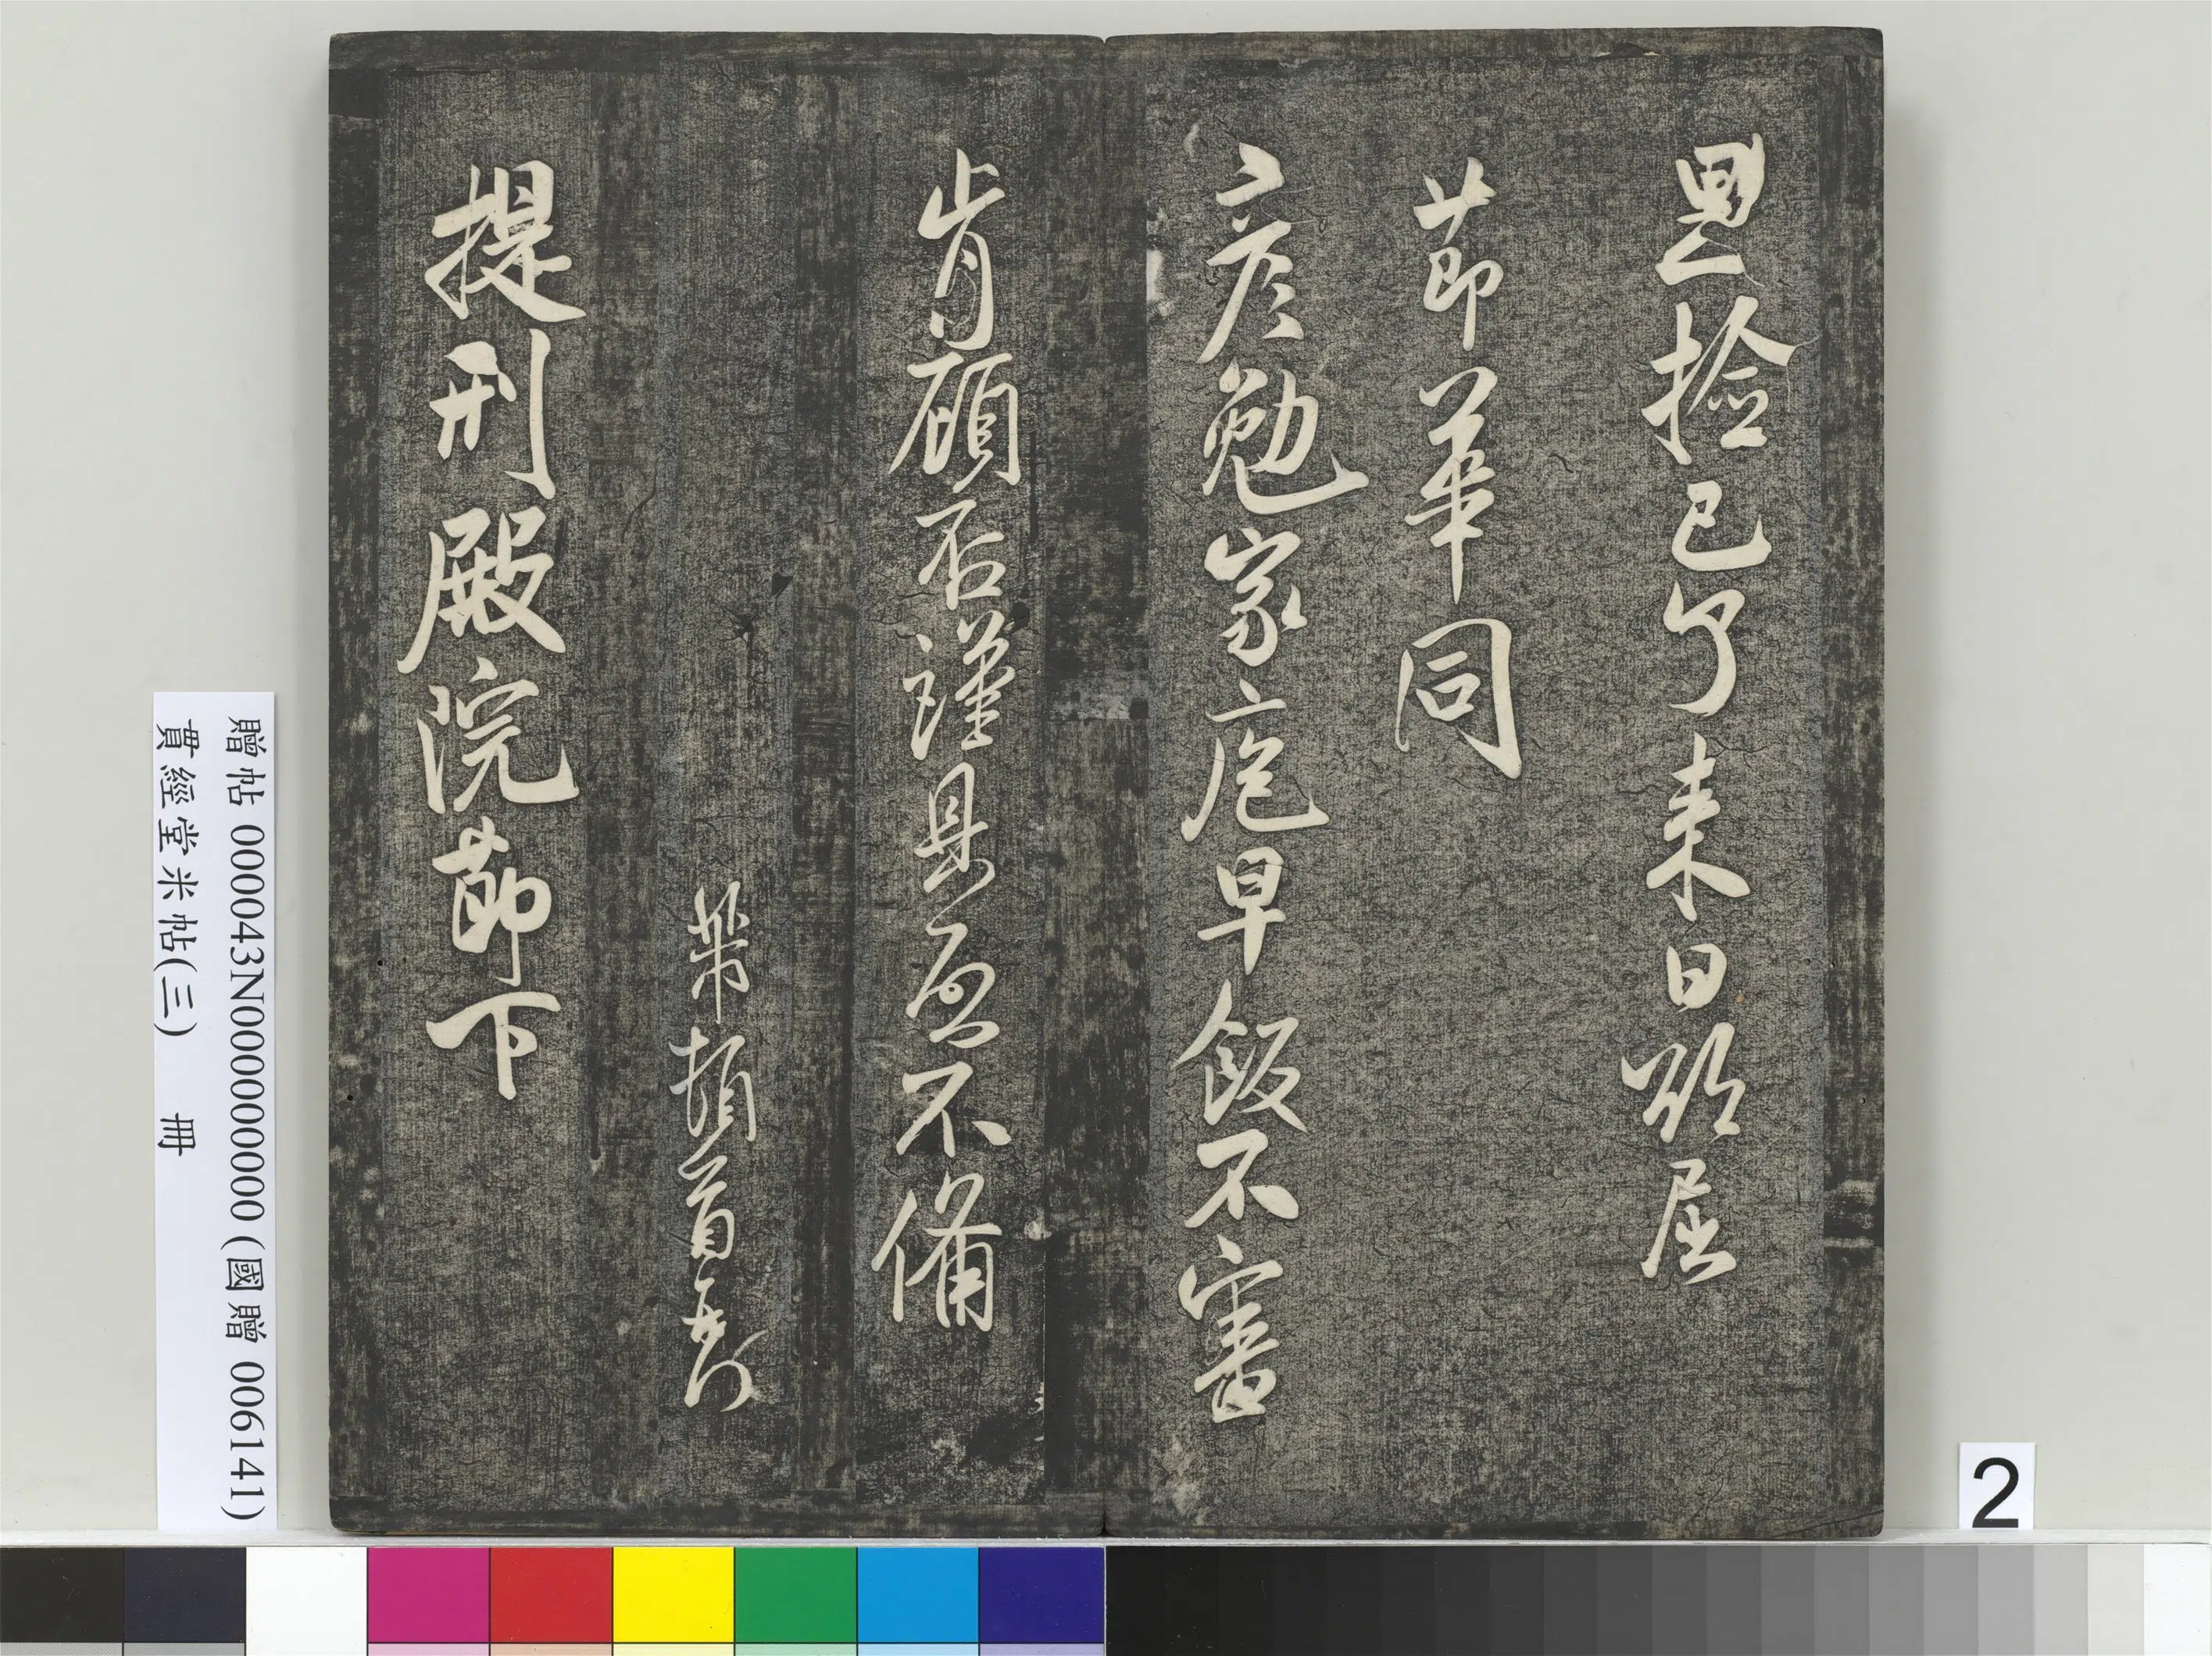 恩捡已了来日欲屈
節華同
彦勉家庖早飯不審
肯顧否謹具啓不備
芾頓首再拜
提刑殿院節下
贈帖 000043N000000000 (國贈 006141)
貫經堂米帖(三) 冊
2